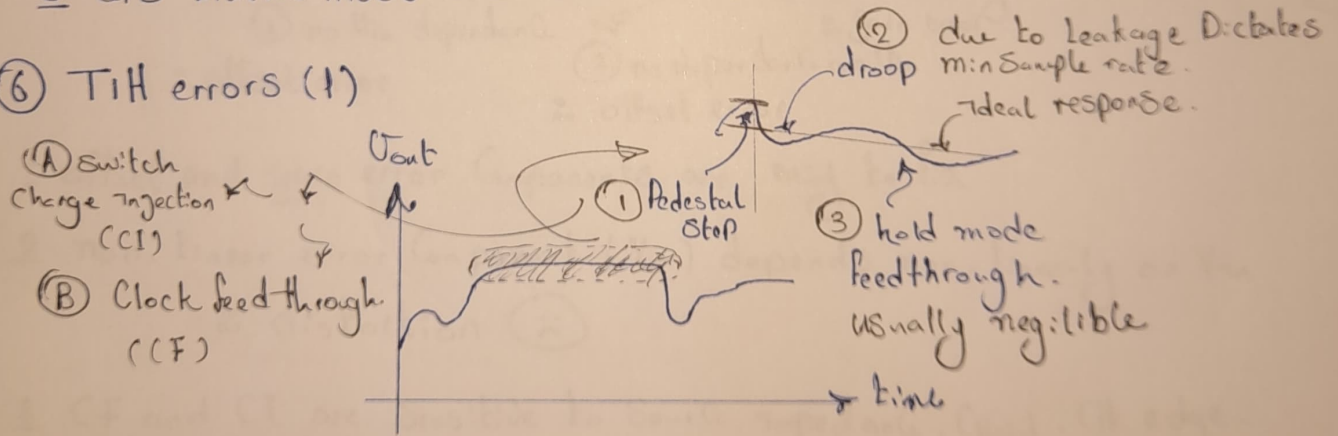 ⑥ TIH errors (1)
Ⓐ switch
Charge injection
(CCI)
Ⓑ Clock feed through
(CF)
Vout
① Pedestal
Step
droop
② due to Leakage Dictates
min Sample rate.
ideal response.
③ hold mode
feedthrough.
usually negilible
time